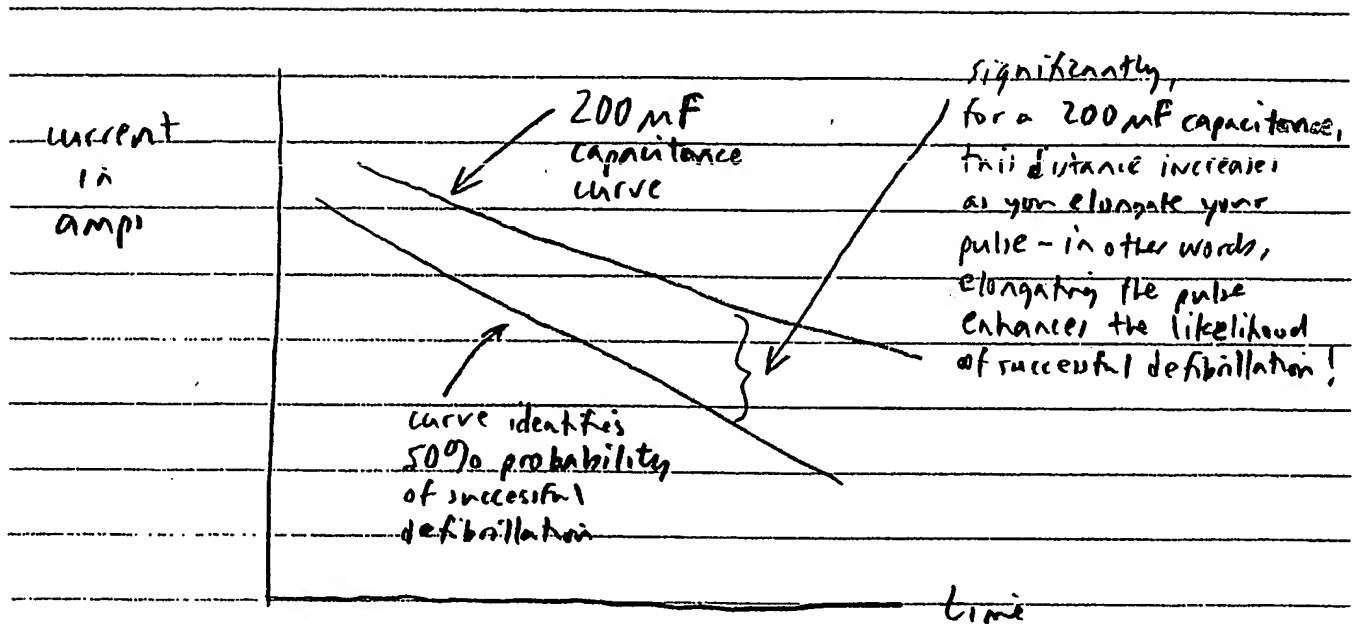 current
in
amps
200 μF
capacitance
curve
significantly,
for a 200 μF capacitance,
this distance increases
as you elongate your
pulse - in other words,
elongating the pulse
enhances the likelihood
of successful defibrillation!
curve identifies
50% probability
of successful
defibrillation
time